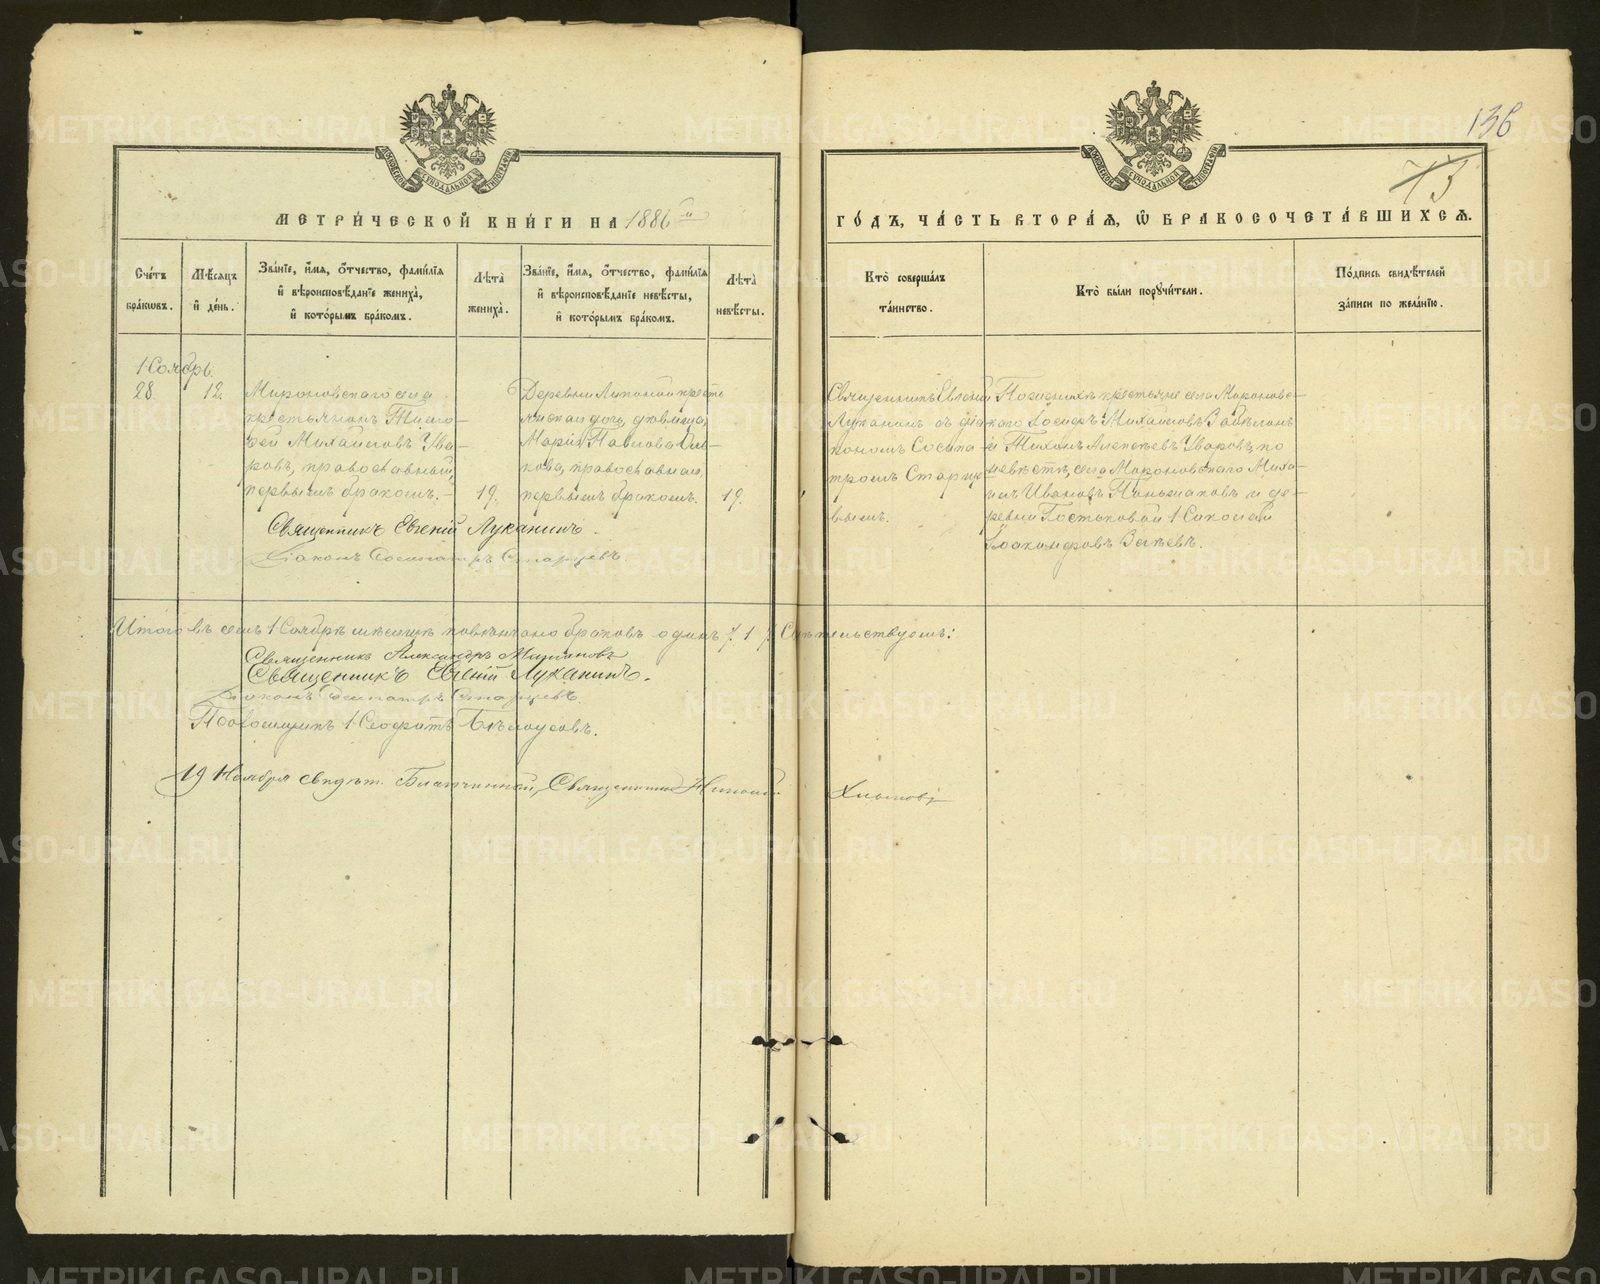 136
75
МЕТРИЧЕСКОЙ КНИГИ НА 1886й
ГОДЪ, ЧАСТЬ ВТОРАЯ, Ѡ БРАКОСОЧЕТАВШИХСЯ.
Счетъ браковъ.
Мѣсяцъ и день.
Званіе, имя, отчество, фамилія
и вѣроисповѣданіе жениха,
и которымъ бракомъ.
Лѣта жениха.
Званіе, имя, отчество, фамилія
и вѣроисповѣданіе невѣсты,
и которымъ бракомъ.
Лѣта невѣсты.
Кто совершалъ
таинство.
Кто были поручители.
Подпись свидѣтелей
записи по желанію.
Ноябрь.
28. 12.
Мироновскаго села
крестьянинъ Тимо-
фей Михайловъ Ува-
ровъ, православный,
первымъ бракомъ.- 19.
Деревни Липиной кресть
янская дочь, дѣвица,
Марія Павлова
православная,
первымъ бракомъ. 19.
Священникъ Евгеній
Луканинъ съ діа
кономъ Сосипа
тромъ Старце
вымъ.
По женихѣ крестьяне села Мироновс-
каго Іосифъ Михайловъ
и Тихонъ Алексѣевъ Уваровъ, по
невѣстѣ, села Мироновскаго Миха-
илъ Ивановъ Паньшаковъ и де-
ревни Николай
Священникъ Евгеній Луканинъ.
Діаконъ Сосипатръ Старцевъ.
Итого въ семъ Ноябрѣ мѣсяцѣ повѣнчано браковъ одинъ /. 1 /. Свидѣтельствуемъ:
Священникъ Александръ
Священникъ Евгеній Луканинъ.
Діаконъ Сосипатръ Старцевъ.
Псаломщикъ Бѣлоусовъ.
19 Ноября свидѣт. Благочинный, Священникъ Николай Хлыновъ
METRIKI.GASO-URAL.RU